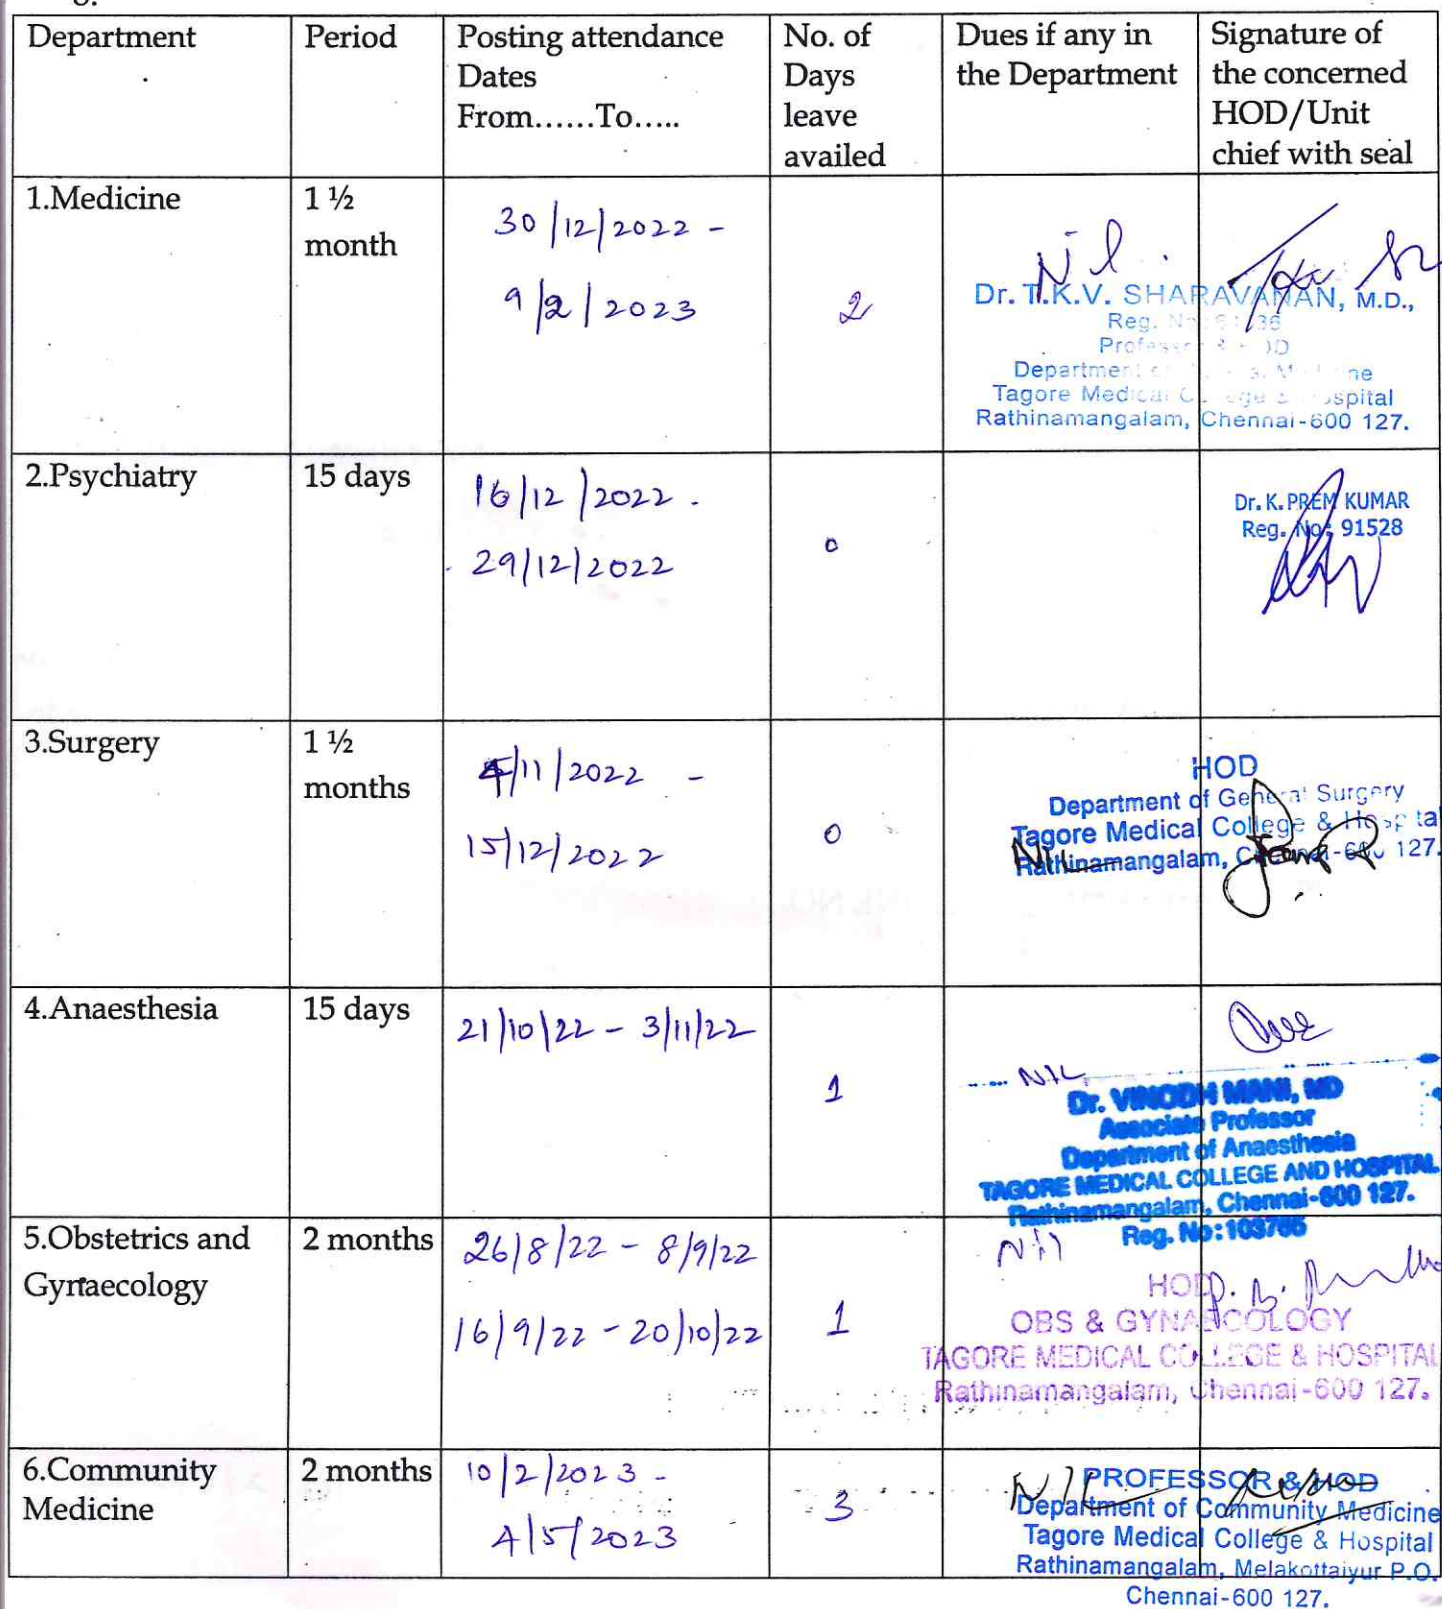 Department
Period
Posting attendance
Dates
From......To.....
No. of
Days
leave
availed
Dues if any in
the Department
Signature of
the concerned
HOD/Unit
chief with seal
1.Medicine
1 ½
month
30/12/2022 -
9/2/2023
2
Nil.
Dr. T.K.V. SHARAVANAN, M.D.,
Reg.
Department
Tagore Medical College & Hospital
Rathinamangalam, Chennai-600 127.
2.Psychiatry
15 days
16/12/2022 .
29/12/2022
0
Dr. K. PREM KUMAR
Reg. No: 91528
3.Surgery
1 ½
months
4/11/2022 -
15/12/2022
0
NIL
HOD
Department of General Surgery
Tagore Medical College & Hospital
Rathinamangalam, Chennai-600 127.
4.Anaesthesia
15 days
21/10/22 - 3/11/22
1
NIL
Dr. VINODH MANI, MD
Associate Professor
Department of Anaesthesia
TAGORE MEDICAL COLLEGE AND HOSPITAL
Rathinamangalam, Chennai-600 127.
Reg. No:103765
5.Obstetrics and
Gynaecology
2 months
26/8/22 - 8/9/22
16/9/22 - 20/10/22
1
Nil
HOD
OBS & GYNAECOLOGY
TAGORE MEDICAL COLLEGE & HOSPITAL
Rathinamangalam, Chennai-600 127.
6.Community
Medicine
2 months
10/2/2023 -
4/5/2023
3
NIL
PROFESSOR & HOD
Department of Community Medicine
Tagore Medical College & Hospital
Rathinamangalam, Melakottaiyur P.O.
Chennai-600 127.